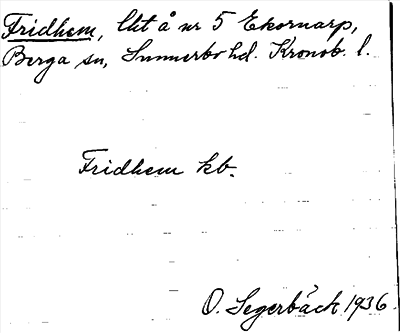 Fridhem, lht å nr 5 Ekornarp,
Berga sn, Sunnerbo hd. Kronob. l.
Fridhem kb.
O. Segerbäck 1936.